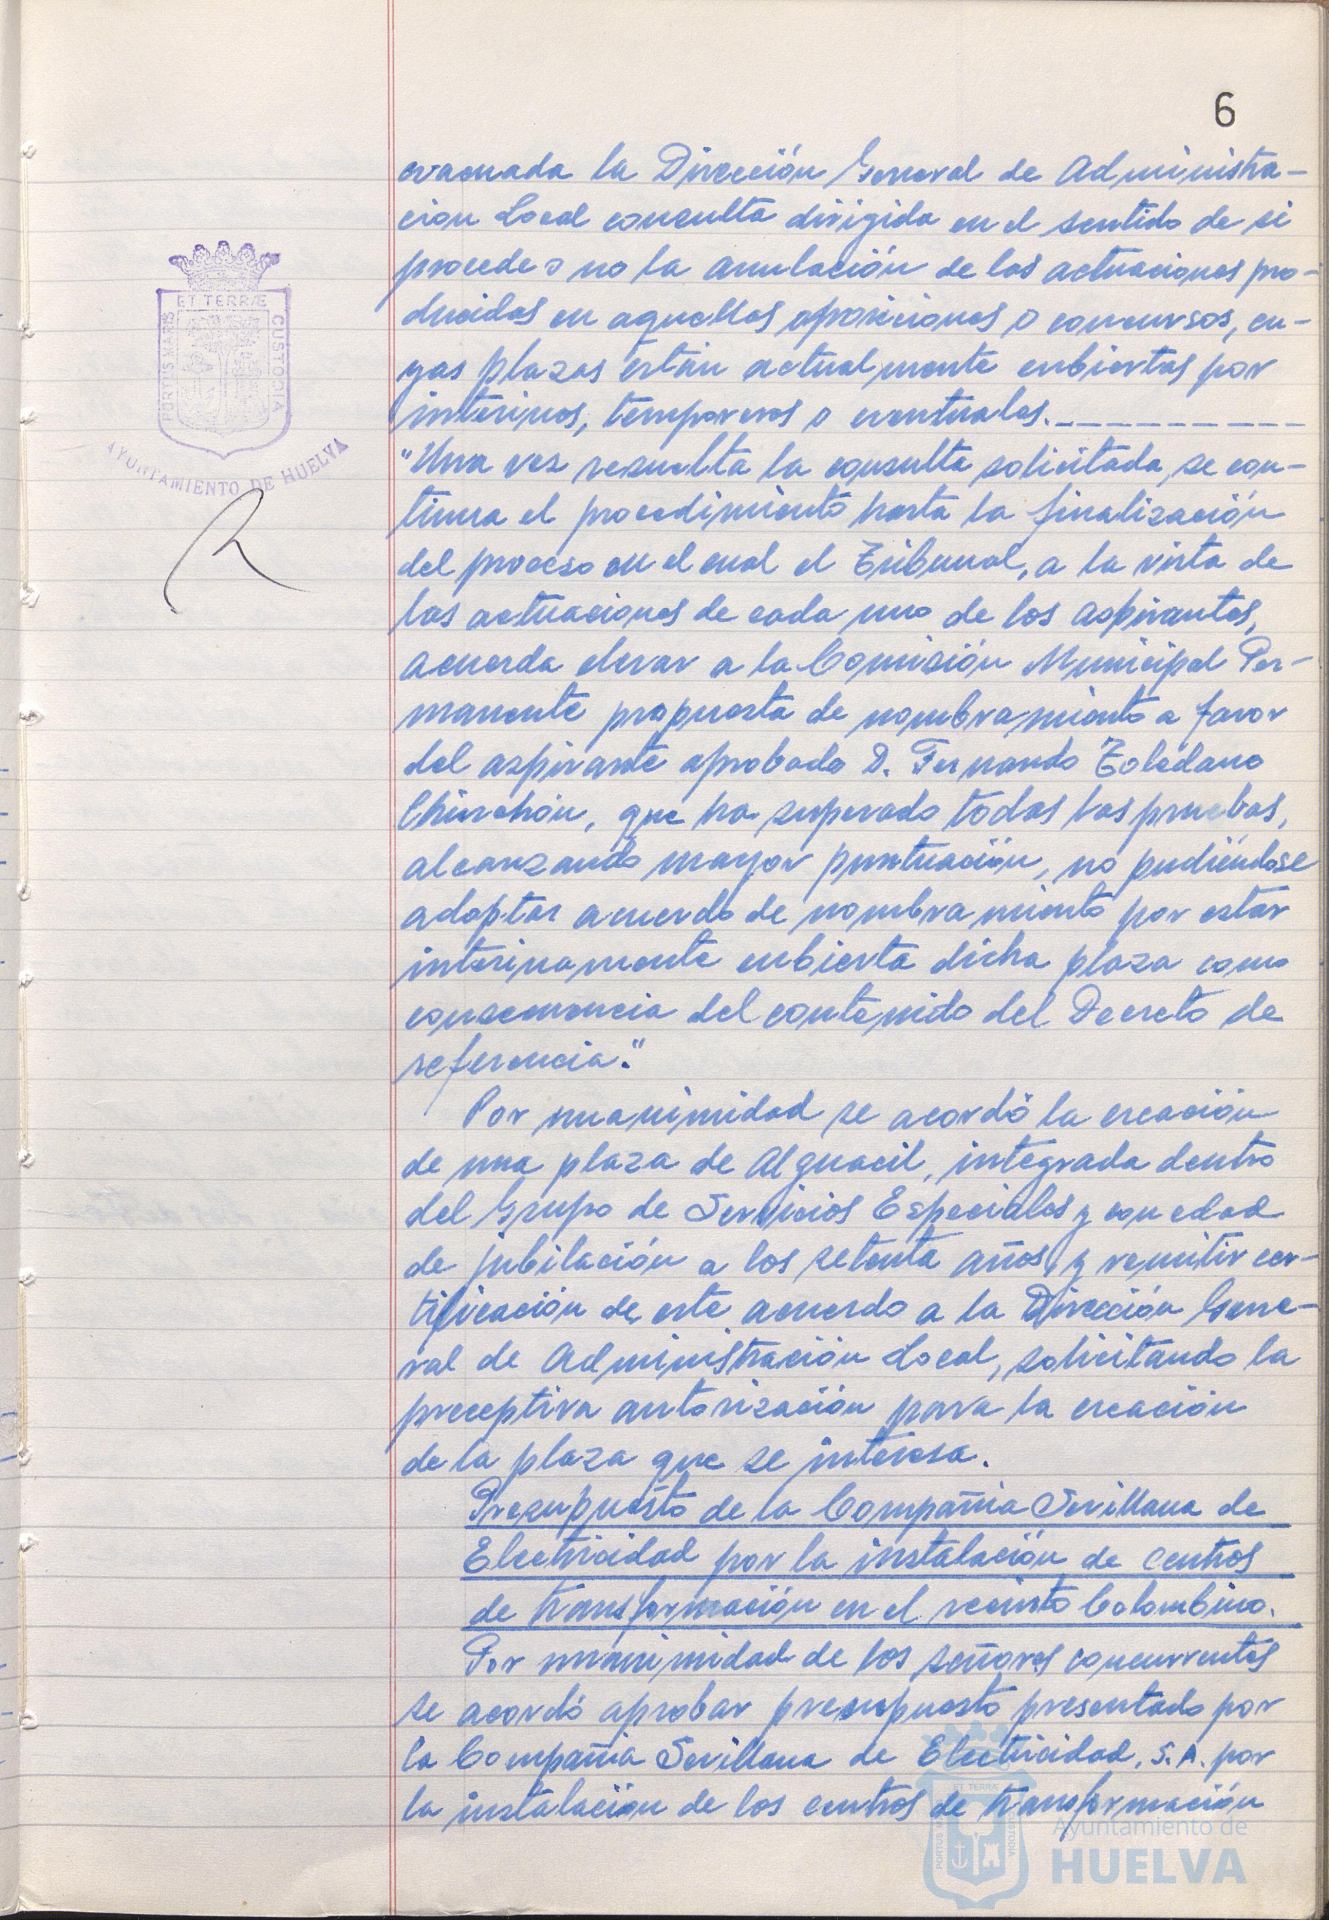 6
evacuada la Dirección General de Administra-
ción Local consulta dirigida en el sentido de si
procede o no la anulación de las actuaciones pro-
ducidas en aquellas oposiciones o concursos, cu-
yas plazas están actualmente cubiertas por
interinos, temporeros o eventuales.
"Una vez resuelta la consulta solicitada, se con-
tinua el procedimiento hasta la finalización
del proceso en el cual el Tribunal, a la vista de
las actuaciones de cada uno de los aspirantes,
acuerda elevar a la Comisión Municipal Per-
manente propuesta de nombramiento a favor
del aspirante aprobado D. Fernando Toledano
Chinchón, que ha superado todas las pruebas,
alcanzando mayor puntuación, no pudiéndose
adoptar acuerdo de nombramiento por estar
interinamente cubierta dicha plaza como
consecuencia del contenido del Decreto de
referencia."
Por unanimidad se acordó la creación
de una plaza de Alguacil, integrada dentro
del Grupo de Servicios Especiales y con edad
de jubilación a los setenta años, y remitir cer-
tificación de este acuerdo a la Dirección Gene-
ral de Administración Local, solicitando la
preceptiva autorización para la creación
de la plaza que se interesa.
Presupuesto de la Compañía Sevillana de
Electricidad por la instalación de centros
de transformación en el recinto Colombino.
Por unanimidad de los señores concurrentes
se acordó aprobar presupuesto presentado por
la Compañía Sevillana de Electricidad, S.A. por
la instalación de los centros de transformación
PORTUS MARIS ET TERRÆ CUSTODIA
AYUNTAMIENTO DE HUELVA
Ayuntamiento de
HUELVA